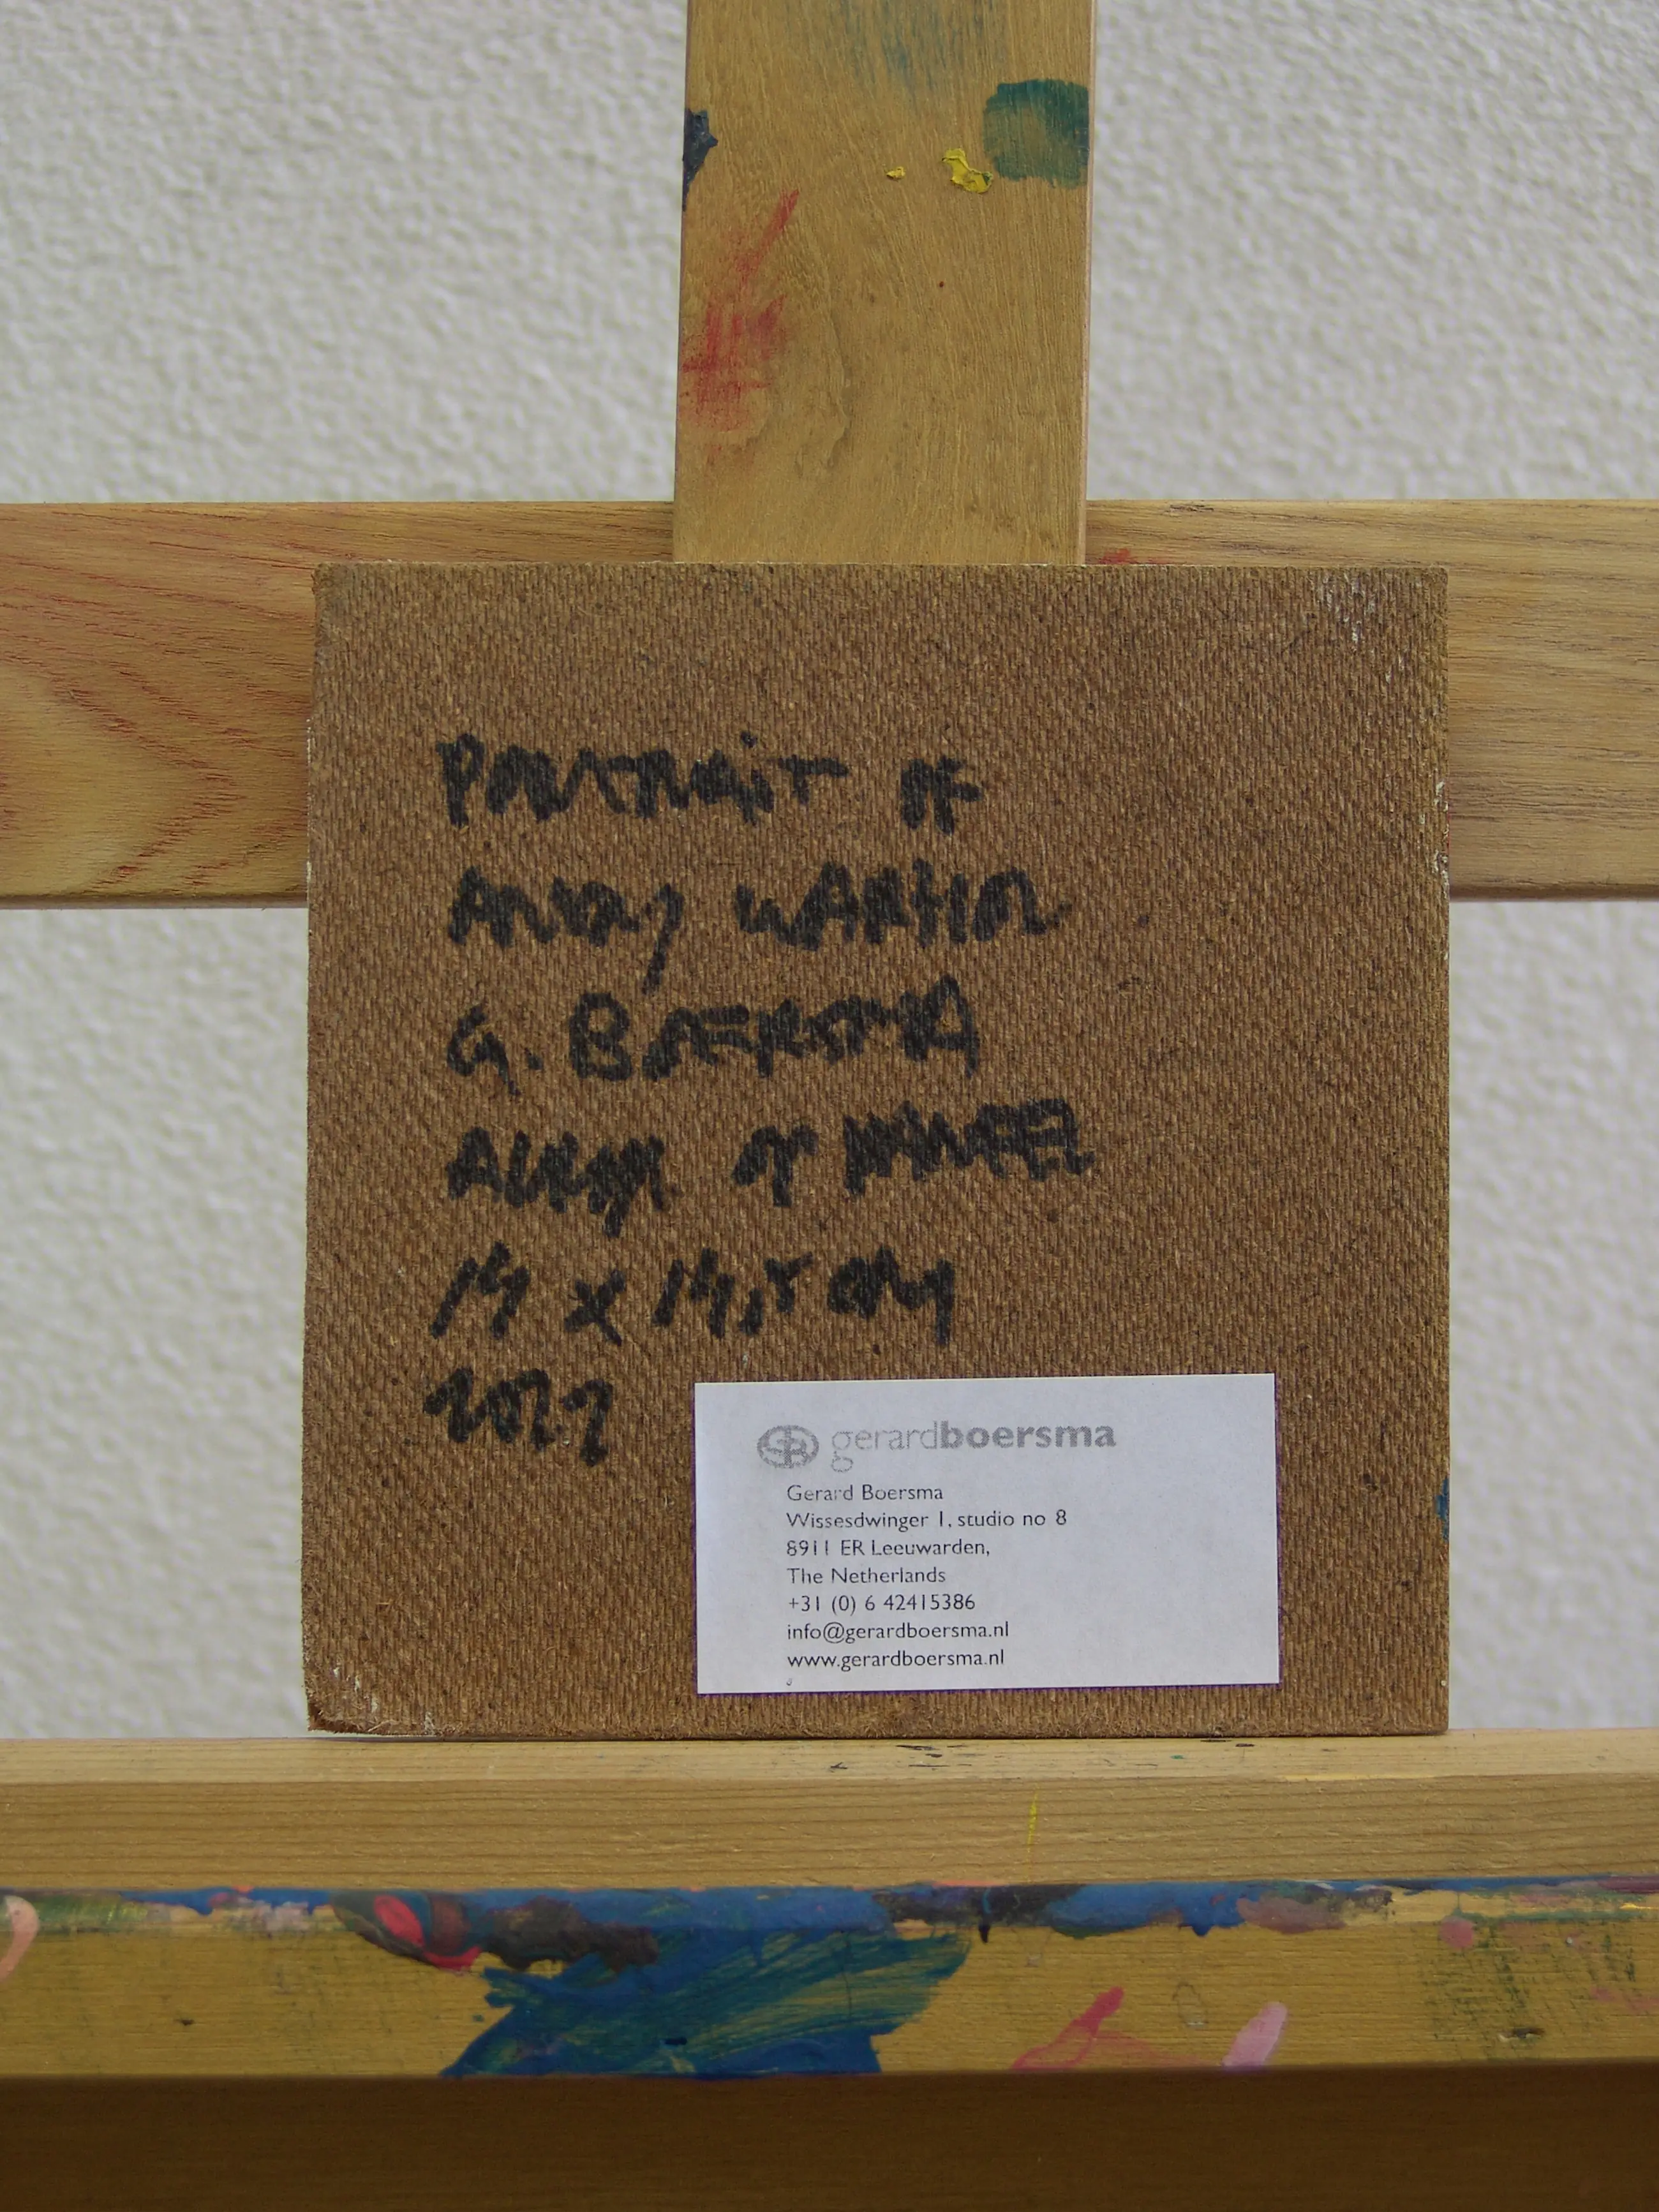 PORTRAiT OF
ANDY WARHOL
G. BOERSMA
ACRYL OP PANEEL
14 x 14,5 CM
2022
gerardboersma
Gerard Boersma
Wissesdwinger 1, studio no 8
8911 ER Leeuwarden,
The Netherlands
+31 (0) 6 42415386
info@gerardboersma.nl
www.gerardboersma.nl